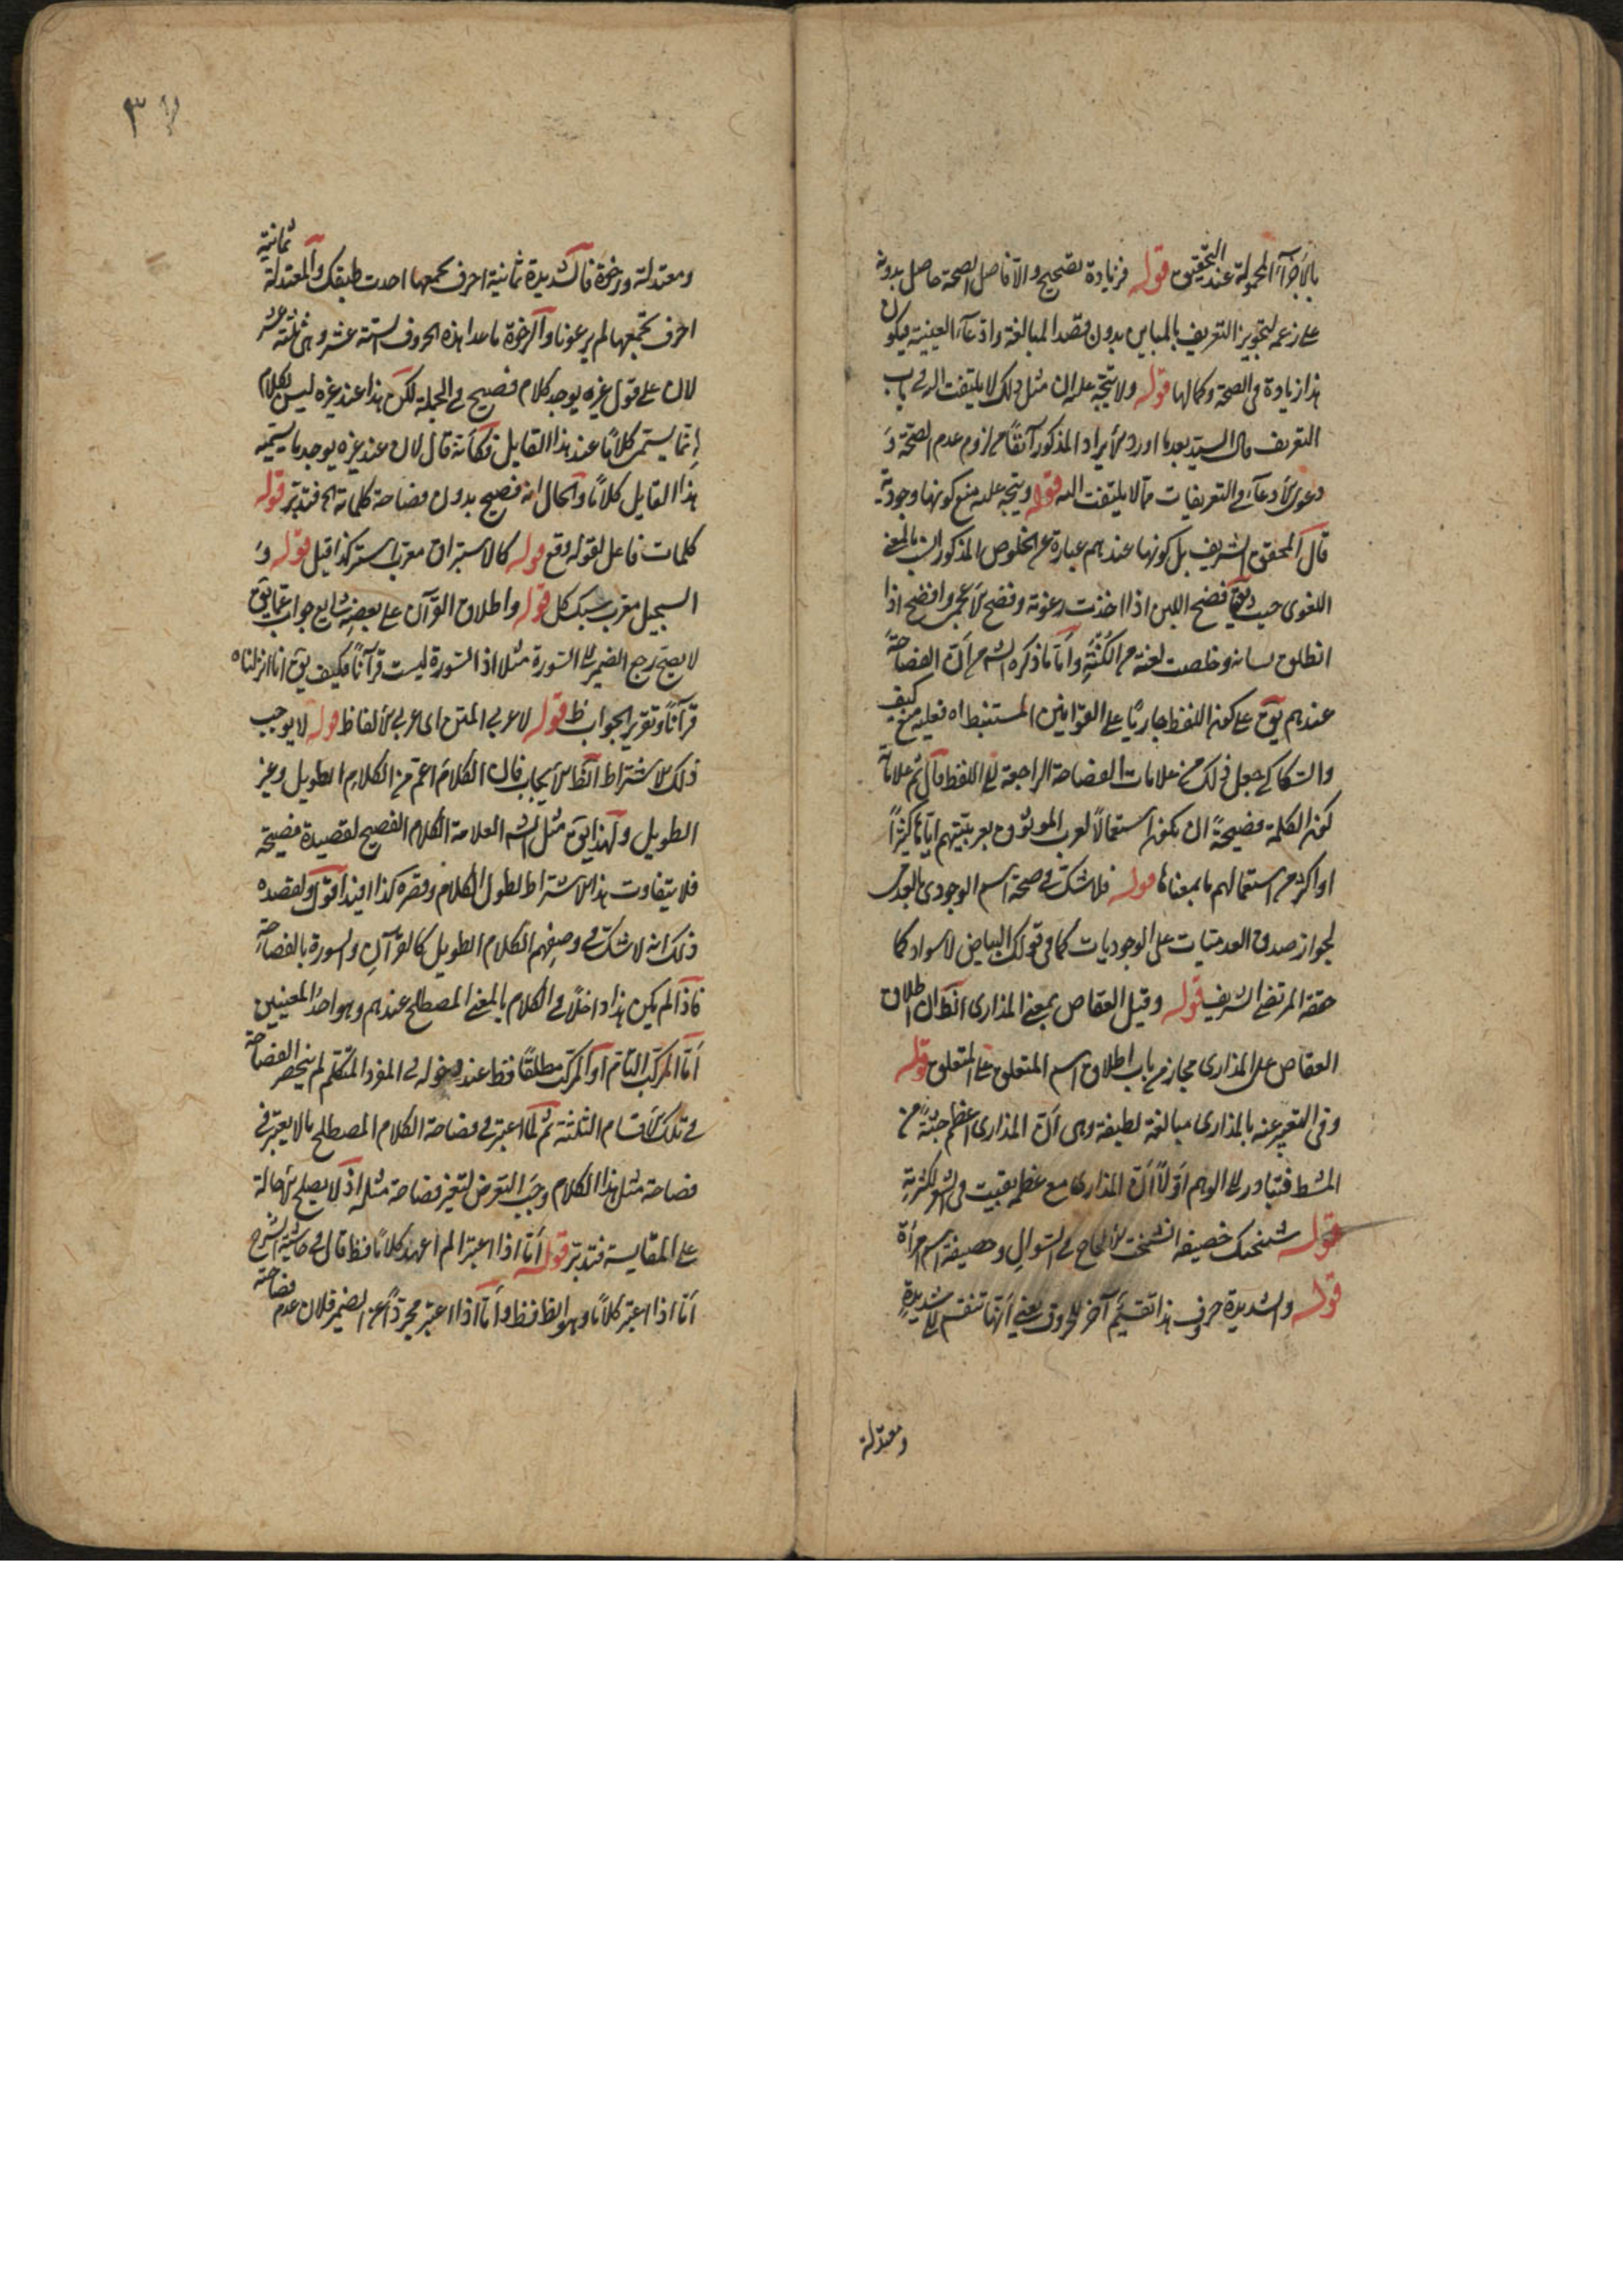 بالاجزاء المحمولة عند التحقيق قوله فزيادة تصحيح والا فاصل الصحة حاصل بدونه
على زعمه لتجويز التعريف بالمباين بدون قصد المبالغة وادعاء العينية فيكون
هذا زيادة فى الصحة وكمالها قوله ولا يتجه عليه ان مثل ذلك لا يلتفت اليه فى باب
التعريف قال السيد بعد ما اورد الايراد المذكور آنفا من لزوم عدم الصحة و
دعوى الادعاء فى التعريفات مما لا يلتفت اليه قوله ويتجه عليه منع كونها وجودية
قال المحقق الشريف بل كونها عندهم عبارة عن الخلوص المذكور انسب بالمعنى
اللغوى حيث يق فصح اللبن اذا اخذت رغوته وفصح الاعجمى وافصح اذا
انطلق لسانه وخلصت لغته من اللكنة واما ما ذكره الش من ان الفصاحة
عندهم يق على كون اللفظ جاريا على القوانين المستنبطة اه فعليه منع كيف
والسكاكى جعل ذلك من علامات الفصاحة الراجعة الى اللفظ قال ثم علامة
كون الكلمة فصيحة ان يكون استعمال العرب الموثوق بعربيتهم اياها كثيرا
او اكثر من استعمالهم ما بمعناها قوله فلا شك فى صحة اسم الوجودى بالعدمى
لجواز صدق العدميات على الوجوديات كما فى قولك البياض لا سواد كما
حققه المرتضى الشريف قوله وقيل العقاص بمعنى المذارى الظ ان اطلاق
العقاص على المذارى مجاز من باب اطلاق اسم المتعلق على المتعلق قوله
وفى التعبير عنه بالمذارى مبالغة لطيفة وهى ان المذارى اعظم جثة من
المشط فتبادر الى الوهم اولا ان المذارى مع عظمه يغيب فى الشعر لكثرته
قوله شنحنك خصيفه الالحاح فى السوال وحصيفة اسم امرأة
قوله والشديدة حروف هذا تقسيم آخر للحروف يعنى انها تنقسم الى شديدة
ومعتدلة
٣
ومعتدلة ورخوة فالشديدة ثمانية احرف يجمعها اجدت طبقك والمعتدلة ثمانية
احرف يجمعها لم يرعونا والرخوة ما عدا هذه الحروف الستة عشر وهى ثلثة عشر
لان على قول غيره يوجد كلام فصيح فى الجملة لكن هذا عند غيره ليس بكلام
انما يسمى كلاما عند هذا القايل فكأنه قال لان عند غيره يوجد ما يسميه
هذا القايل كلاما والحال انه فصيح بدون فصاحة كلماته الخ فتدبر قوله
كلمات فاعل لقوله وقع قوله كالاستبراق معرب استبر كذا قيل قوله و
السجيل معرب سنك كل قوله واطلاق القرآن على بعضه شايع جواب عما يق
لا يصح رجع الضمير الى السورة مثلا اذ السورة ليست قرآنا فكيف يق انا انزلناه
قرآنا وتقرير الجواب ظ قوله لا عربى المتن اى عربى الالفاظ قوله لا يوجب
ذلك الاشتراط الظ الايجاب فان الكلام اعم من الكلام الطويل وغير
الطويل ولهذا يق مثل الش العلامة الكلام الفصيح لقصيدة فصيحة
فلا يتفاوت هذا الاشتراط لطول الكلام وقصره كذا افيد اقول ولقصده
ذلك انه لا شك فى وصفهم الكلام الطويل كالقرآن والسورة بالفصاحة
فاذا لم يكن هذا داخلا فى الكلام بالمعنى المصطلح عندهم وهو احد المعنيين
اما المركب التام او المركب مطلقا فظ عند دخوله فى المفرد المتكلم لم ينحصر الفصاحة
فى تلك الاقسام الثلثة ثم لما اعتبر فى فصاحة الكلام المصطلح ما لا يعتبر فى
فصاحة مثل هذا الكلام وجب التعرض لتغير فصاحة مثله اذ لا يصلح الاحالة
على المقايسة فتدبر قوله اما اذا اعتبر الم اعهد كلاما فظ قال فى حاشية الشرح
اما اذا اعتبر كلاما وهو الظ فظ واما اذا اعتبر مجردا عن الضمير فلان عدم فصاحته